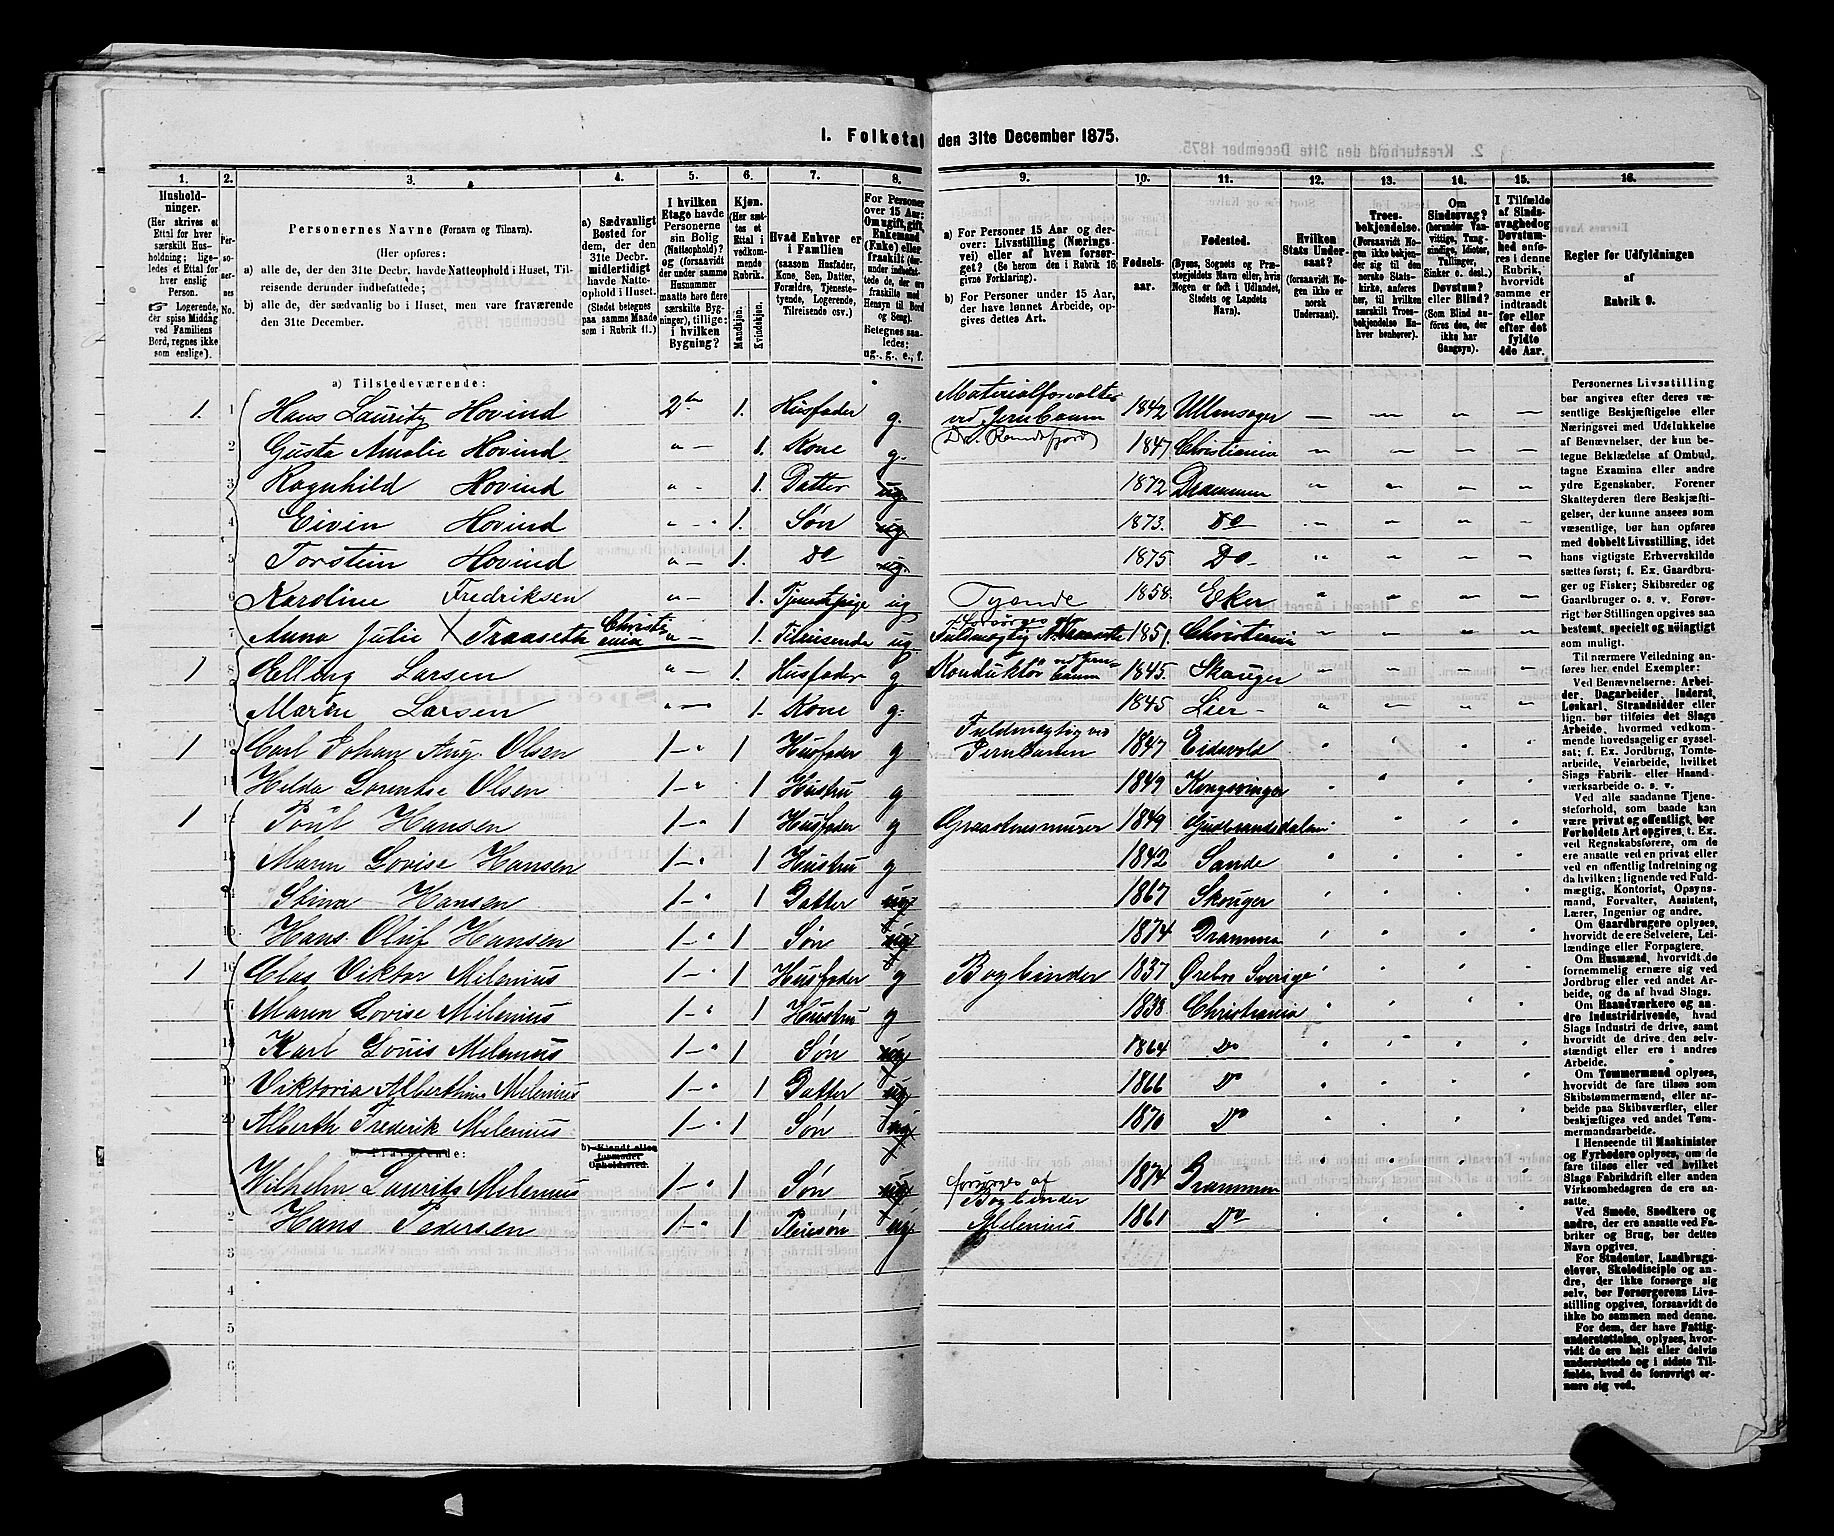 1. Folketal den 31te December 1875.
1. 2. 3. 4. 5. 6. 7. 8. 9. 10. 11. 12. 13. 14. 15. 16.
Husholdninger.
(Her skrives et Ettal for hver særskilt Husholdning; ligeledes et Ettal for hver enslig Person.
Logerende, der spise Middag ved Familiens Bord, regnes ikke som enslige).
Personernes No.
Personernes Navne (Fornavn og Tilnavn).
(Her opføres:
a) alle de, der den 31te Decbr. havde Natteophold i Huset, Tilreisende derunder indbefattede;
b) alle de, der sædvanlig bo i Huset, men vare fraværende den 31te December.
a) Sædvanligt Bosted for dem, der den 31te Decbr. midlertidigt havde Natteophold i Huset.
(Stedet betegnes paa samme Maade som i Rubrik 11.)
I hvilken Etage havde Personerne sin Bolig (Natteophold)? og (forsaavidt der under samme Husnummer maatte høre flere særskilte Bygninger), tillige: i hvilken Bygning?
Kjøn. (Her sættes et Ettal i vedkommende Rubrik.
Mandskjøn. Kvindekjøn.
Hvad Enhver er i Familien
(saasom Husfader, Kone, Søn, Datter, Forældre, Tjenestetyende, Logerende, Tilreisende osv.)
For Personer over 15 Aar: Om ugift, gift, Enkemand (Enke) eller fraskilt (derunder indbefattede de, der ere fraskilte med Hensyn til Bord og Seng).
Betegnes saaledes: ug., g., e., f.
a) For Personer 15 Aar og derover: Livsstilling (Næringsvei) eller af hvem forsørget? (Se herom den i Rubrik 16 givne Forklaring).
b) For Personer under 15 Aar, der have lønnet Arbeide, opgives dettes Art.
Fødselsaar.
Fødested.
(Byens, Sognets og Præstegjeldets Navn eller, hvis Nogen er født i Udlandet, Stedets og Landets Navn).
Hvilken Stats Undersaat?
(Forsaavidt Nogen ikke er norsk Undersaat).
Troesbekjendelse.
(Forsaavidt Nogen ikke bekjender sig til den norske Statskirke, anføres her, til hvilken særskilt Troesbekjendelse Enhver henhører).
Om Sindssvag? (herunder Vanvittige, Tungsindige, Idioter, Tullinger, Sinker o. desl.) Døvstum? eller Blind?
(Som Blind anføres den, der ikke har Gangsyn).
I Tilfælde af Sindssvaghed og Døvstumhed anføres i denne Rubrik, hvorvidt samme er indtraadt før eller efter det fyldte 4de Aar.
Regler for Udfyldningen af Rubrik 9.
a) Tilstedeværende:
1. 1 Hans Lauritz Hovind 2den 1. Husfader g. Materialforvalter ved Jernbanen 1842 Ullensager
2 Gusta Amalie Hovind 1. Kone g. (Dr. Randsfjord) 1847 Christiania
3 Ragnhild Hovind 1. Datter ug 1872 Drammen
4 Eivin Hovind 1. Søn ug 1873. Do
5 Torstein Hovind 1. Do ug. 1875 Do
6 Karoline Fredriksen 1. Tjenestpige ug Tyende 1858. Eker
7 Anna Julie X Traaseth Christiania 1. Tilreisende ug. forsørges af Fuldmægtig 1851. Christiania
1 8 Elling Larsen 1. Husfader g Konduktør ved Jernbanen 1845. Skouger
9 Maren Larsen 1. Kone g. 1845 Lier
1 10 Carl Johan Aug. Olsen 1 1 Husfader g Fuldmægtig ved Jernbanen 1847 Eidsvold
11 Hilda Lorentse Olsen 1 1 Hustru g 1849 Kongsvinger
1 12 Poul Hansen 1 1 Husfader g Graastensmurer 1849 Gudbrandsdalen
13 Maren Lovise Hansen 1 1 Hustru g 1842 Sande
14 Stina Hansen 1 1 Datter ug 1867 Skouger
15 Hans Oluf Hansen 1 1 Søn ug 1874 Drammen
1 16 Clas Viktor Milenius 1 1 Husfader g Bogbinder 1837 Ørebro Sverige
17 Maren Lovise Milenius 1 1 Hustru g 1838 Christiania
18 Karl Louis Milenius 1 1 Søn ug 1864 Do
19 Viktoria Alberthine Milenius 1 1 Datter ug 1866 Do
20 Alberth Fredrik Milenius 1 1 Søn ug 1870 Do
b) Fraværende:
b) Kjendt eller formodet Opholdssted.
Wilhelm Laurits Milenius 1 1 Søn ug 1874 Drammen
2 Hans Pedersen 1 1 Pleiesøn ug forsørges af Bogbinder Milenius 1861 Do
3
4
5
6
Personernes Livsstilling bør angives efter deres væsentlige Beskjæftigelse eller Næringsvei med Udelukkelse af Benævnelser, der kun betegne Beklædelse af Ombud, tagne Examina eller andre ydre Egenskaber. Forener Skatteyderen flere Beskjæftigelser, der kunne ansees som væsentlige, bør han opføres med dobbelt Livsstilling, idet hans vigtigste Erhvervskilde sættes først; f. Ex. Gaardbruger og Fisker; Skibsreder og Gaardbruger o. s. v. Forøvrigt bør Stillingen opgives saa bestemt, specielt og nøiagtigt som muligt.
Til nærmere Veiledning anføres her endel Exempler:
Ved Benævnelserne: Arbeider, Dagarbeider, Inderst, Løskarl, Strandsidder eller lign. bør tilføies det Slags Arbeide, hvormed vedkommende hovedsagelig er sysselsat; f. Ex. Jordbrug, Tomtearbeide, Veiarbeide, hvilket Slags Fabrik- eller Haandværksarbeide o. s. v.
Ved alle saadanne Tjenesteforhold, som baade kan være privat og offentligt, bør Forholdets Art opgives, t. Ex. ved Regnskabsførere, om de ere ansatte ved en privat eller ved en offentlig Indretning og da hvilken; lignende ved Fuldmægtig, Kontorist, Opsynsmand, Forvalter, Assistent, Lærer, Ingeniør og andre.
Om Gaardbrugere oplyses, hvorvidt de ere Selveiere, Leilændinge eller Forpagtere.
Om Husmænd, hvorvidt de fornemmelig ernære sig ved Jordbrug eller ved andet Arbeide, og da af hvad Slags.
Om Haandværkere og andre Industridrivende, hvad Slags Industri de drive, samt hvorvidt de drive den selvstændigt eller ere i andres Arbeide.
Om Tømmermænd oplyses, hvorvidt de fare tilsøs som Skibstømmermænd, eller arbeide paa Skibsværfter, eller beskjæftiges ved andet Tømmermandsarbeide.
I Henseende til Maskinister og Fyrbødere oplyses, om de fare tilsøs eller ved hvilket Slags Fabrikdrift eller anden Virksomhedsgren de ere ansatte.
Ved Smede, Snedkere og andre, der ere ansatte ved Fabriker og Brug, bør dettes Navn opgives.
For Studenter, Landbrugselever, Skoledisciple og andre, der ikke forsørge sig selv, bør Forsørgerens Livsstilling opgives, forsaavidt de ikke bo sammen med denne.
For dem, der have Fattigunderstøttelse, oplyses, hvorvidt de ere helt eller delvis understøttede og i sidste Tilfælde, hvad de forøvrigt ernære sig ved.